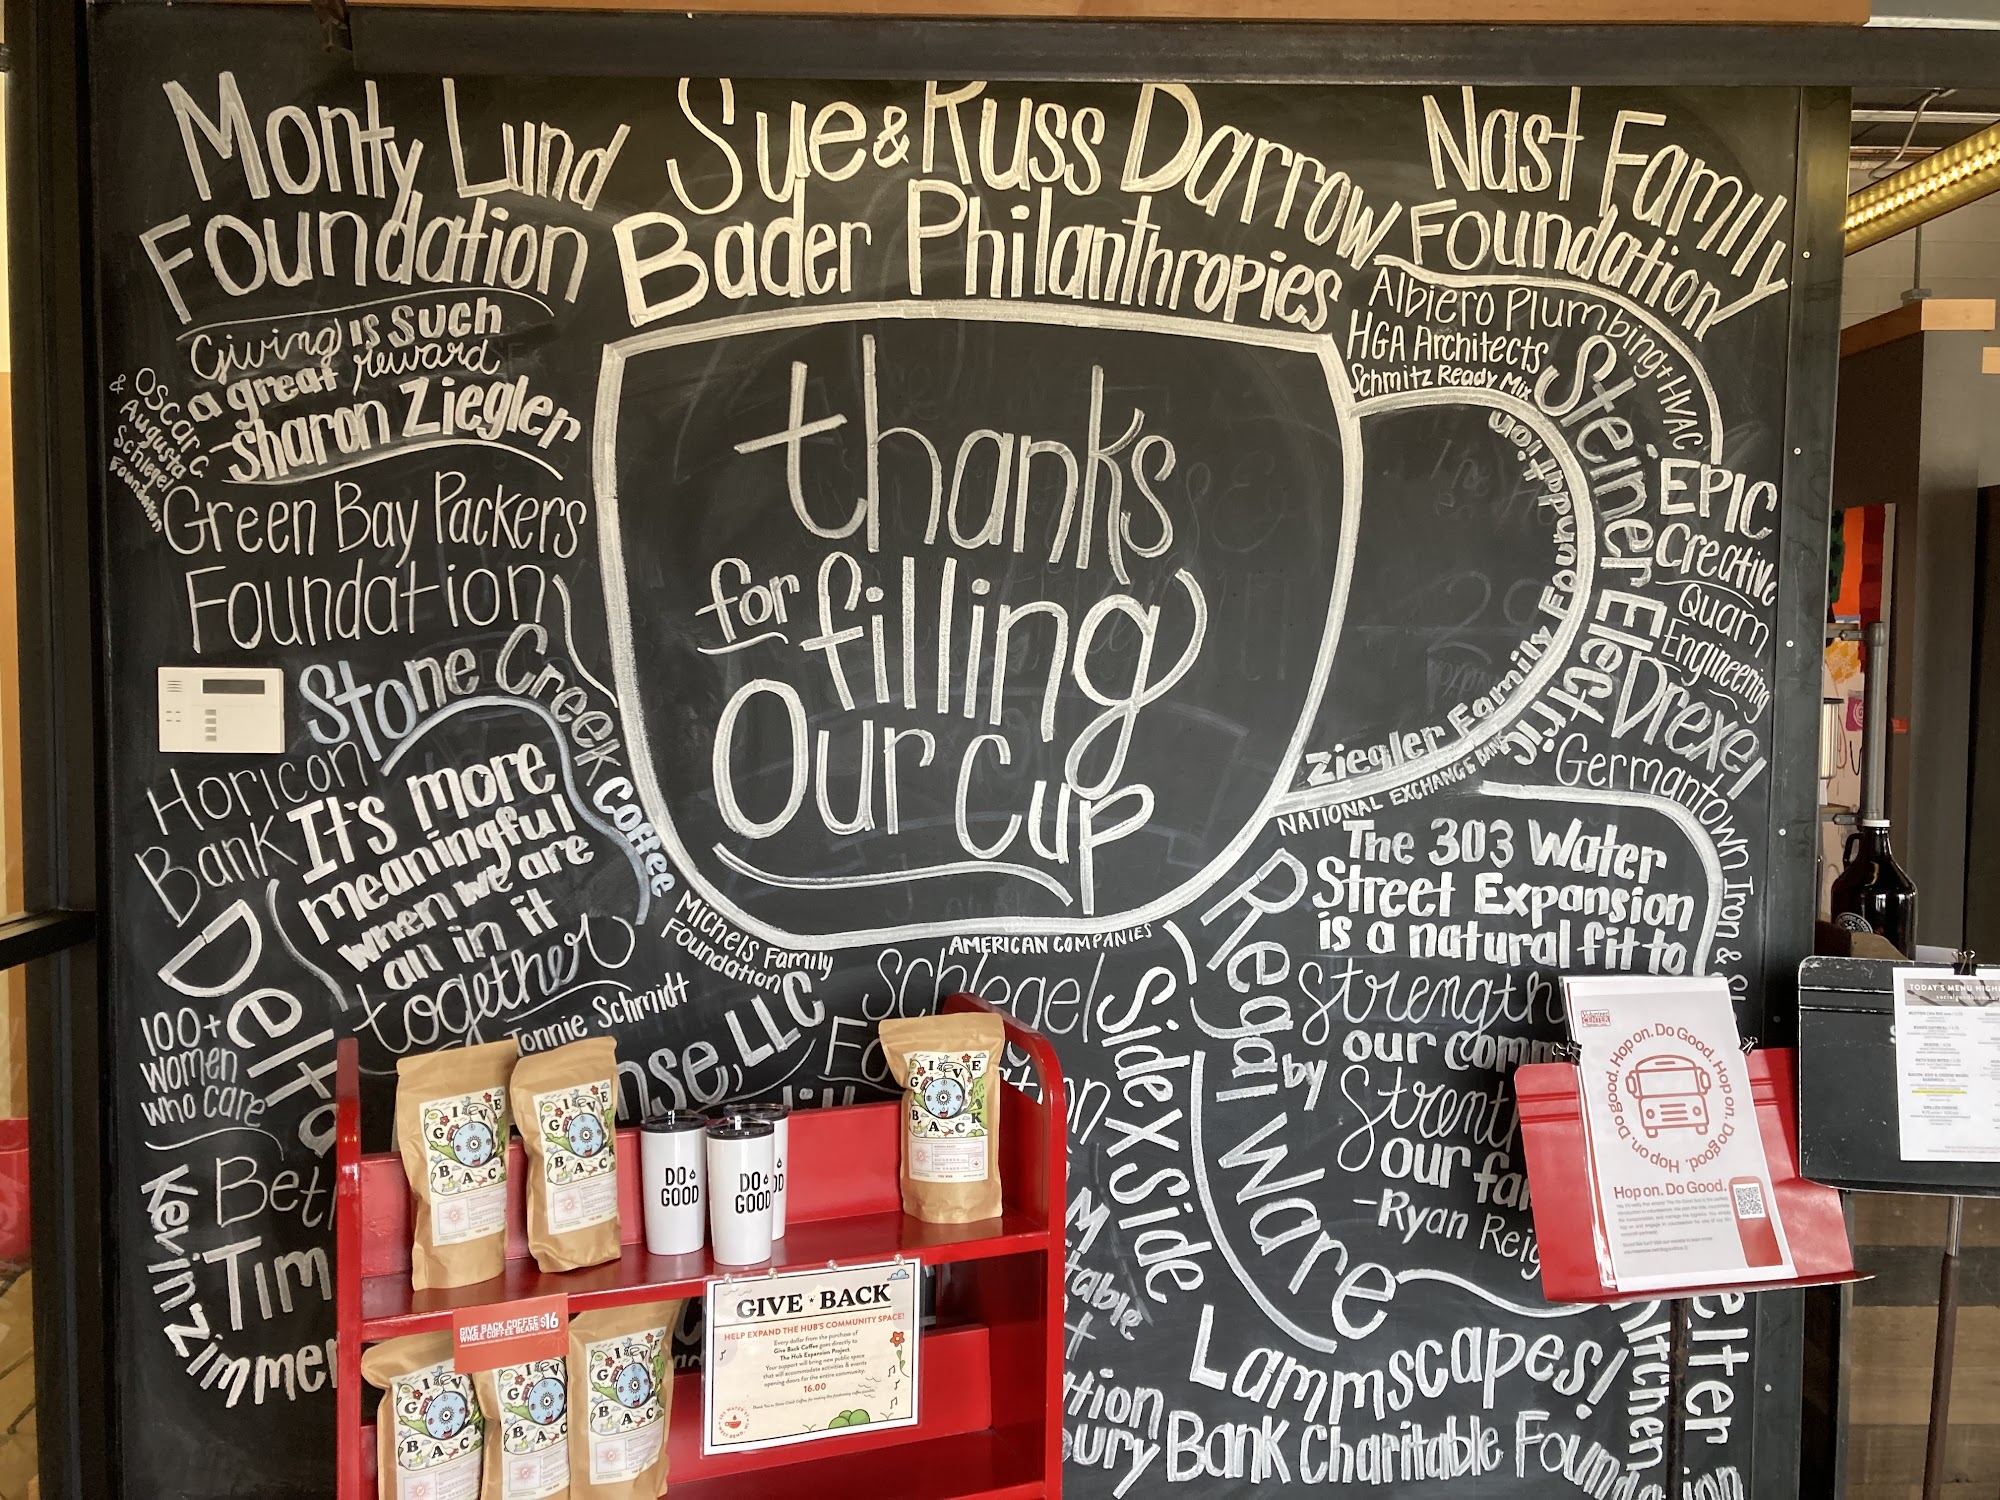 Monty Lund
Foundation
Sue & Russ Darrow
Bader Philanthropies
Nast Family
Foundation
Giving is such
a great reward
-Sharon Ziegler
& Oscar C.
Augusta
Schlegel
Foundation
Green Bay Packers
Foundation
Stone Creek Coffee
Horicon
Bank
It's more
meaningful
when we are
all in it
together
Tonnie Schmidt
Delta
100+
women
who care
Bet
Tim
Kevin Zimmer
thanks
for filling
our cup
Albiero Plumbing + HVAC
HGA Architects
Schmitz Ready Mix
Steiner Electric
Ziegler Family Foundation
NATIONAL EXCHANGE BANK
EPIC
Creative
Quam
Engineering
Drexel
Germantown Iron &
Michels Family
Foundation
AMERICAN COMPANIES
nse, LLC
Schlegel
SideXSide
Regal Ware
The 303 Water
Street Expansion
is a natural fit to
strengthen
our comm
by
strent
our fa
-Ryan Reig
Lammscapes!
Kitchen
elter
table
tion
bury Bank Charitable Foundation
GIVE
BACK
GIVE
BACK
GIVE
BACK
DO
GOOD
DO
GOOD
GIVE BACK COFFEE $16
WHOLE COFFEE BEANS
GIVE
BACK
GIVE
BACK
GIVE
BACK
GIVE BACK
HELP EXPAND THE HUB'S COMMUNITY SPACE!
Every dollar from the purchase of
Give Back Coffee goes directly to
The Hub Expansion Project.
Your support will bring new public space
that will accommodate activities & events
opening doors for the entire community.
16.00
Volunteer
CENTER
Hop on. Do Good. Hop on. Do Good. Hop on. Do Good.
Hop on. Do Good.
TODAY'S MENU HIGHL